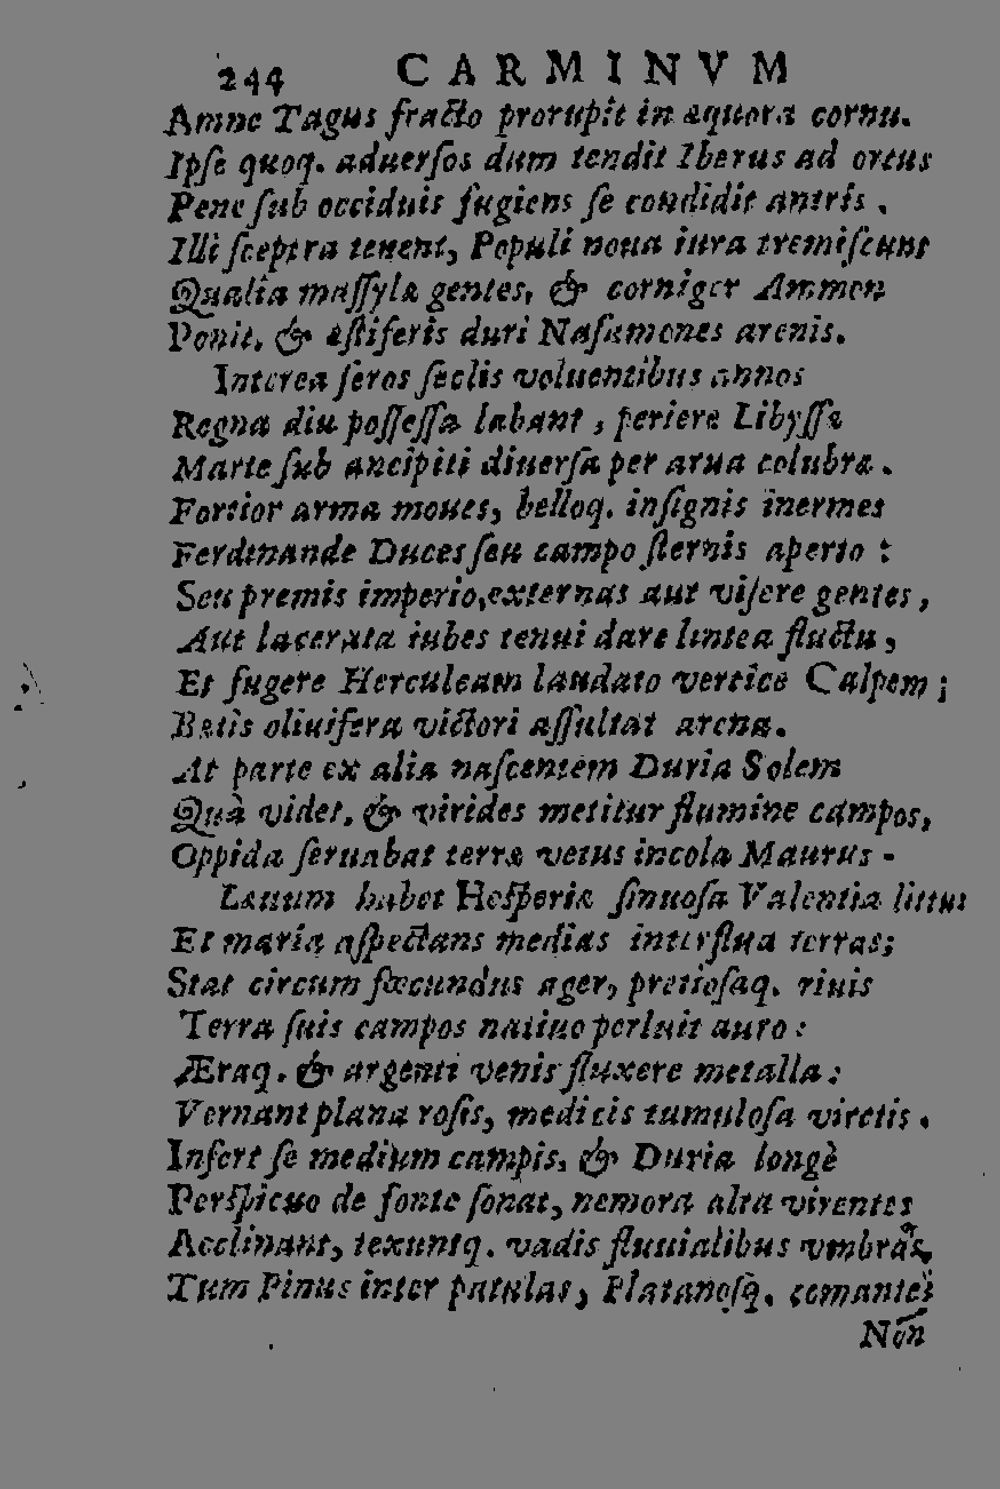 244 CARMINVM
Amne Tagus fracto prorupit in æquora cornu.
Ipſe quoq. aduerſos dum tendit Iberus ad ortus
Pene ſub occiduis fugiens ſe condidit antris.
Illi ſceptra tenent, Populi noua iura tremiſcunt
Qualia maſſylæ gentes, & corniger Ammon
Ponit, & æſtiferis duri Naſamones arenis.
Interea ſeros ſeclis voluentibus annos
Regna diu poſſeſſa labant, periere Libyſſæ
Marte ſub ancipiti diuerſa per arua colubræ.
Fortior arma moues, belloq. inſignis inermes
Ferdinande Duces ſeu campo ſternis aperto:
Seu premis imperio, externas aut viſere gentes,
Aut lacerata iubes tenui dare lintea fluctu,
Et fugere Herculeam laudato vertice Calpem;
Bætis oliuifera victori aſſultat arena.
At parte ex alia naſcentem Duria Solem
Quà videt, & virides metitur flumine campos,
Oppida ſeruabat terræ vetus incola Maurus.
Læuum habet Heſperiæ ſinuoſa Valentia littus
Et maria aſpectans medias interflua terras;
Stat circum fœcundus ager, pretioſaq. riuis
Terra ſuis campos natiuo perluit auro:
Æraq. & argenti venis fluxere metalla:
Vernant plana roſis, medicis tumuloſa viretis.
Inſert ſe medium campis, & Duria longè
Perſpicuo de fonte ſonat, nemora alta virentes
Acclinant, texuntq. vadis fluuialibus vmbras,
Tum Pinus inter patulas, Platanoſq. comantes
Non